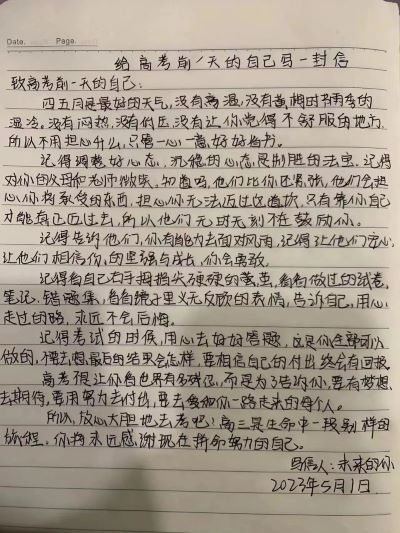 Date. Page.
给高考前一天的自己写一封信
致高考前一天的自己:
四五月是最好的天气,没有高温,没有黄梅时节雨季的
湿冷。没有闷热,没有低压,没有让你觉得不舒服的地方。
所以不用担心什么,只管一心一意,好好读书。
记得调整好心态,沉稳的心态是制胜的法宝,记得
对你的父母和老师微笑,知道吗,他们比你还紧张,他们会担
心你将承受的东西,担心你无法迈过这道坎,只有靠你自己
才能真正迈过去,所以他们无时无刻不在鼓励你。
记得告诉他们,你有能力去面对风雨,记得让他们放心,
让他们相信你的坚强与成长,你会勇敢。
记得看自己右手拇指尖硬硬的黄茧,看看做过的试卷,
笔记,错题集,看看镜子里义无反顾的表情,告诉自己,用心
走过的路,永远不会后悔。
记得考试的时候,用心去好好答题,这是你全部可以
做的,不要去想最后的结果会怎样,要相信自己的付出终会有回报。
高考不是让你看世界有多残忍,而是为了告诉你,要有梦想
去期待,要用努力去付出,要去感谢你一路走来的每个人。
所以,放心大胆地去考吧!高三是生命中一段别样的
旅程,你将永远感谢现在拼命努力的自己。
写信人:未来的你
2023年5月1日